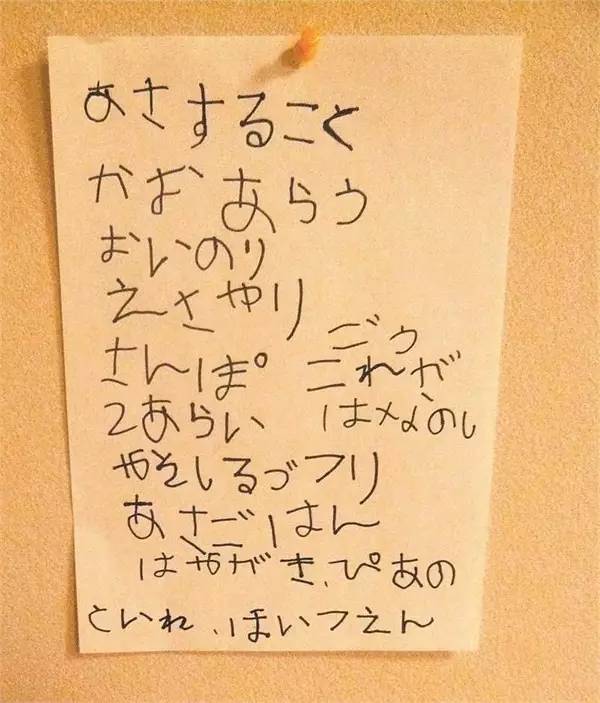 あさすること
かおあらう
おいのり
えさやり
さんぽ
ごう
これが
2あらい
はなのし
みそしるづフリ
あさごはん
はみがき、ぴあの
といれ、ほいつえん